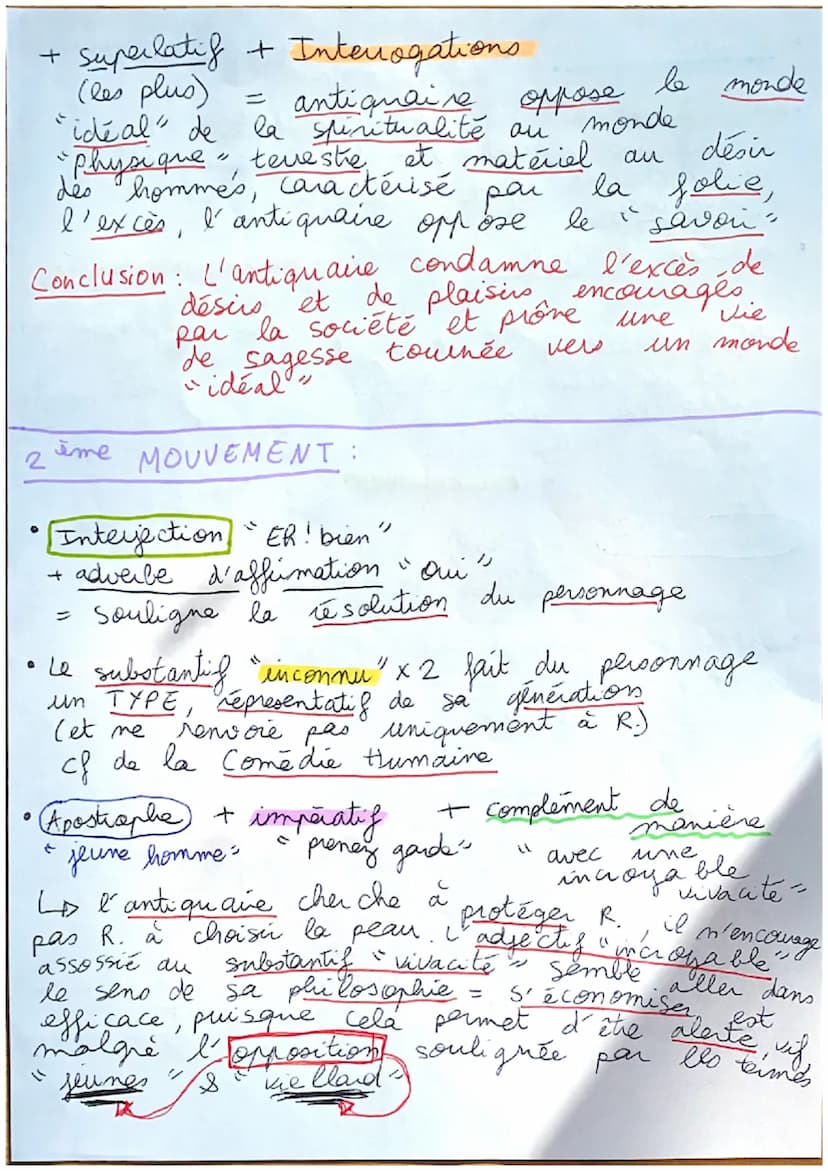 + superlatif + Interrogations
(les plus) = antiquaire oppose le monde
"idéal" de la spiritualité au monde
"physique", terrestre et matériel au désir
des hommes, caractérisé par la folie,
l'excès, l'antiquaire oppose le "savoir"
Conclusion : L'antiquaire condamne l'excès de
désirs et de plaisirs encouragés
par la société et prône une vie
de sagesse tournée vers un monde
"idéal"
2ème MOUVEMENT :
• Interjection "Eh! bien"
+ adverbe d'affirmation "Oui"
= souligne la résolution du personnage
• Le substantif "inconnu" x 2 fait du personnage
un TYPE, représentatif de sa génération
(et ne renvoie pas uniquement à R.)
cf de la Comédie Humaine
• Apostrophe + impératif + complément de
manière
"jeune homme" "prenez garde" "avec une
incroyable
vivacité"
↳ l'antiquaire cherche à protéger R., il n'encourage
pas R. à choisir la peau. L'adjectif "incroyable"
assossié au substantif "vivacité" semble aller dans
le sens de sa philosophie = s'économiser est
efficace, puisque cela permet d'être alerte, vif
malgré l'opposition soulignée par les termes
"jeunes" & "viellard"